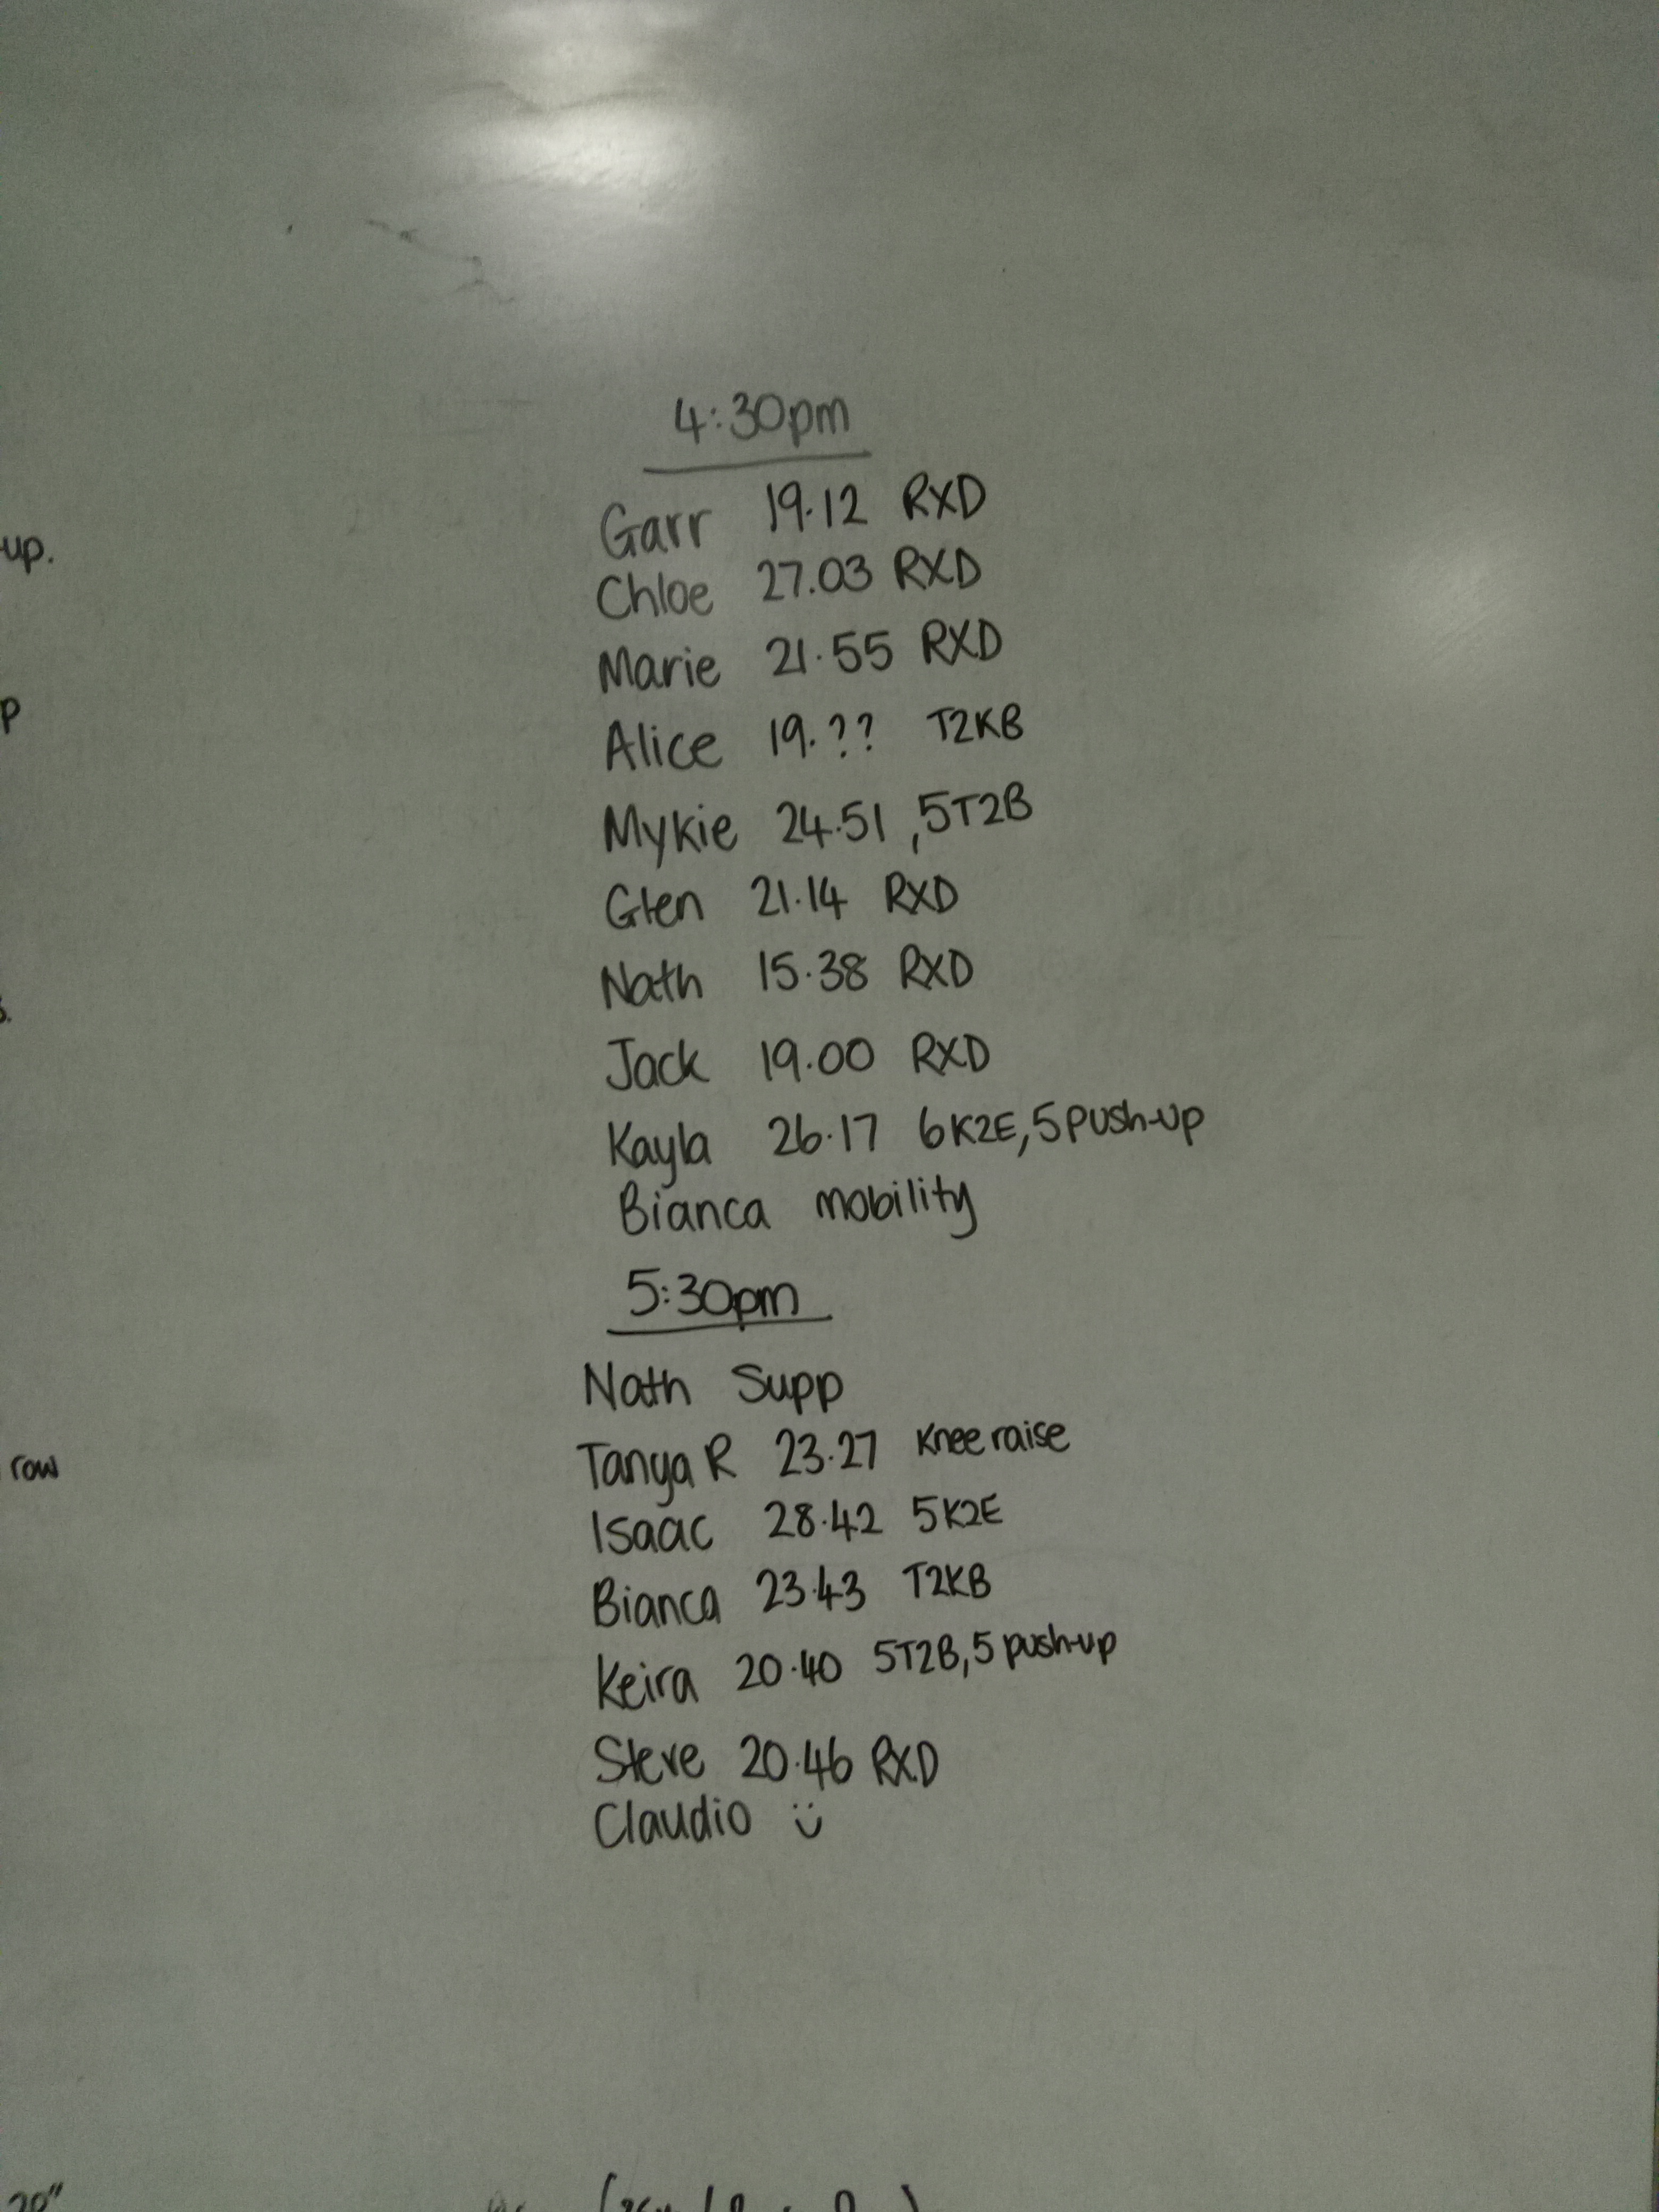 4:30pm
Garr 19.12 RXD
Chloe 27.03 RXD
Marie 21.55 RXD
Alice 19.?? T2KB
Mykie 24.51 ,5T2B
Glen 21.14 RXD
Nath 15.38 RXD
Jack 19.00 RXD
Kayla 26.17 6K2E, 5 push-up
Bianca mobility
5:30pm
Nath Supp
Tanya R 23.27 Knee raise
Isaac 28.42 5K2E
Bianca 23.43 T2KB
Keira 20.40 5T2B, 5 push-up
Steve 20.46 RXD
Claudio ü
-up.
p
row
20"